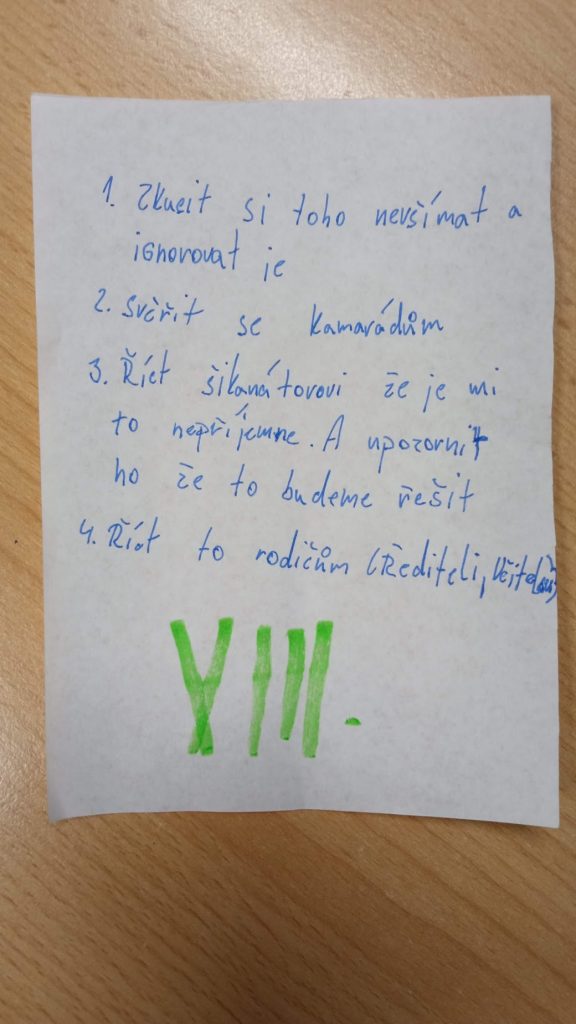 1. Zkusit si toho nevšímat a
ignorovat je
2. Svěřit se kamarádům
3. Říct šikanátorovi že je mi
to nepříjemne. A upozornit
ho že to budeme řešit
4. Říct to rodičům (Řediteli,
VIII.